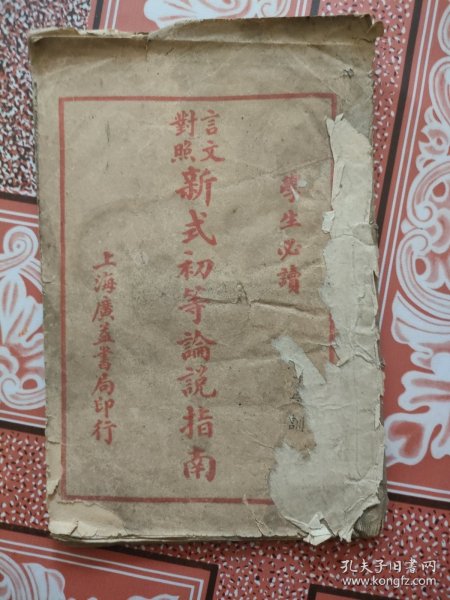 學生必讀
言文
對照
新式初等論說指南
上海廣益書局印行
孔夫子旧书网
www.kongfz.com